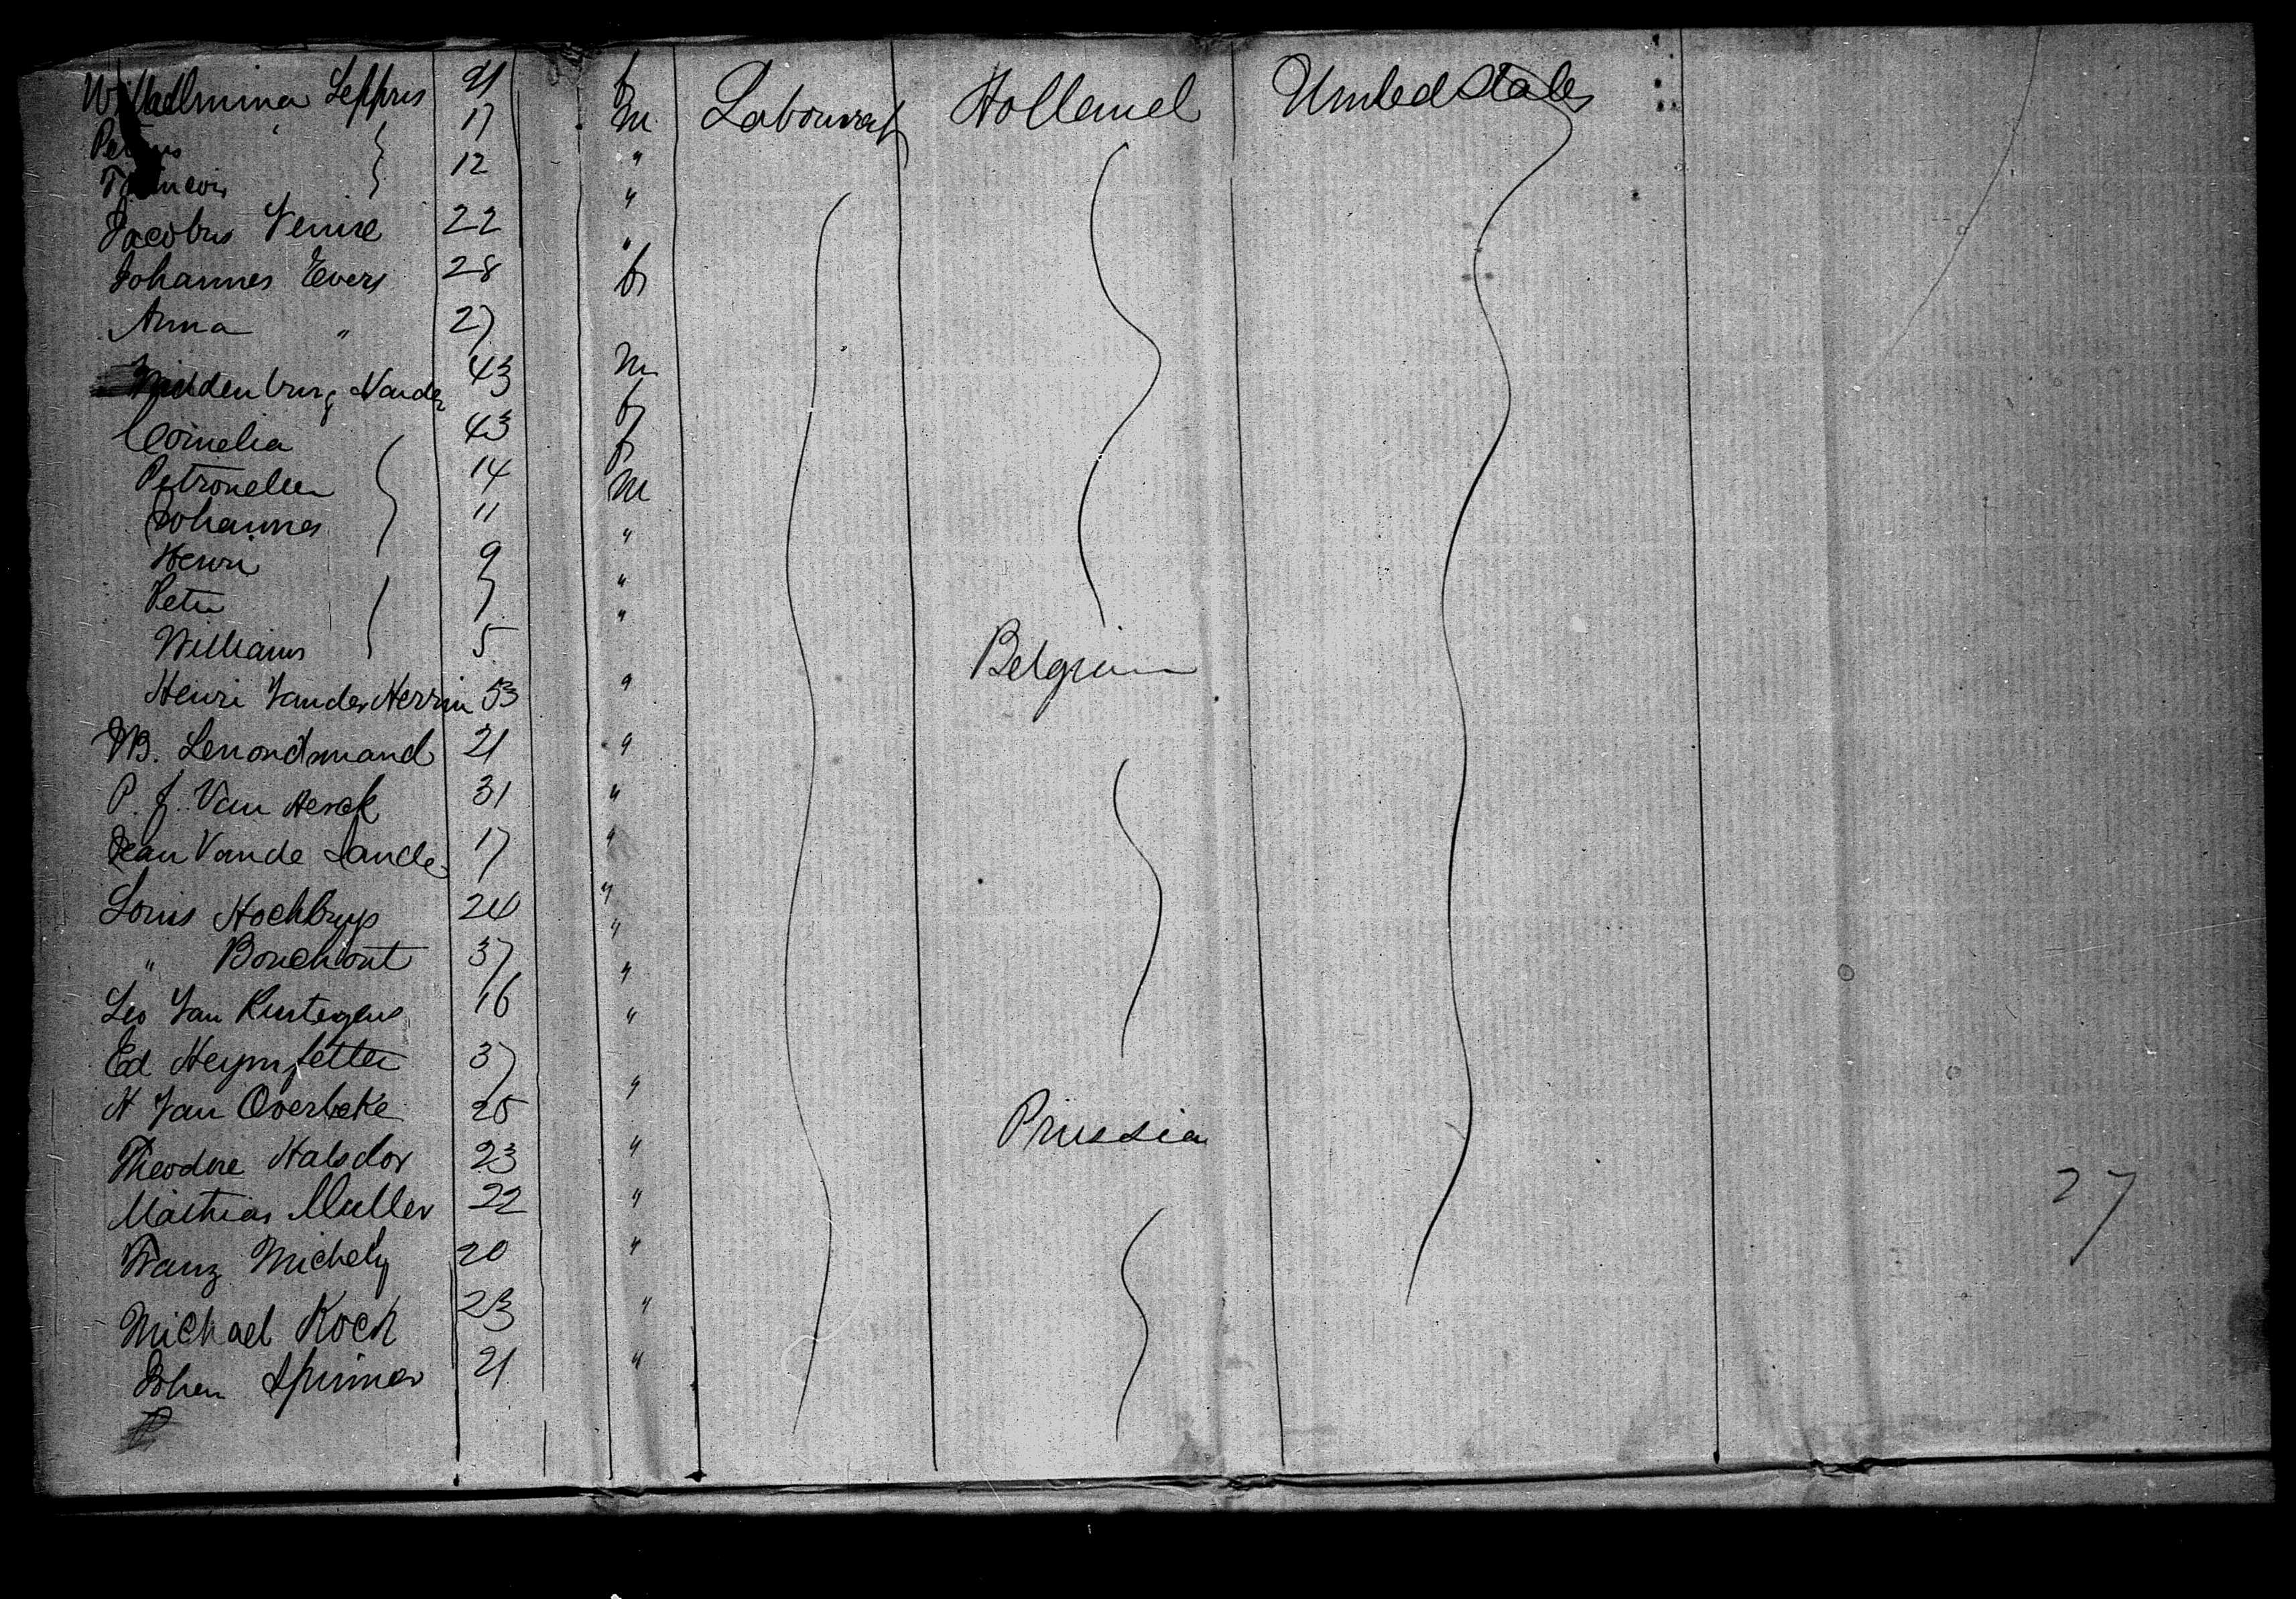 Wilhelmina Leppres 21 f Labourers Holland United States
Petrus " 17 m
Francois 12 "
Jacobus Venire 22 "
Johannes Evers 28 "
Anna " 27 f
Middenburg Vander 43 m
Cornelia 43 f
Petronella 14 f
Johannes 11 m
Henri 9 "
Peter 7 "
Williams 5 "
Henri Vander Herrin 53 " Belgium
Lenordmand 21 "
P. J. Van Aerck 31 "
Jean Vande Lande 17 "
Louis Hochbuys 24 "
" Bouchout 37 "
Leo Van 16 "
Ed 37 "
H Van Overbeke 25 "
Theodore Halsdor 23 " Prussia
Mathias Muller 22 "
Franz Michely 20 "
Michael Koch 23 "
Johen Spinner 21 "
27